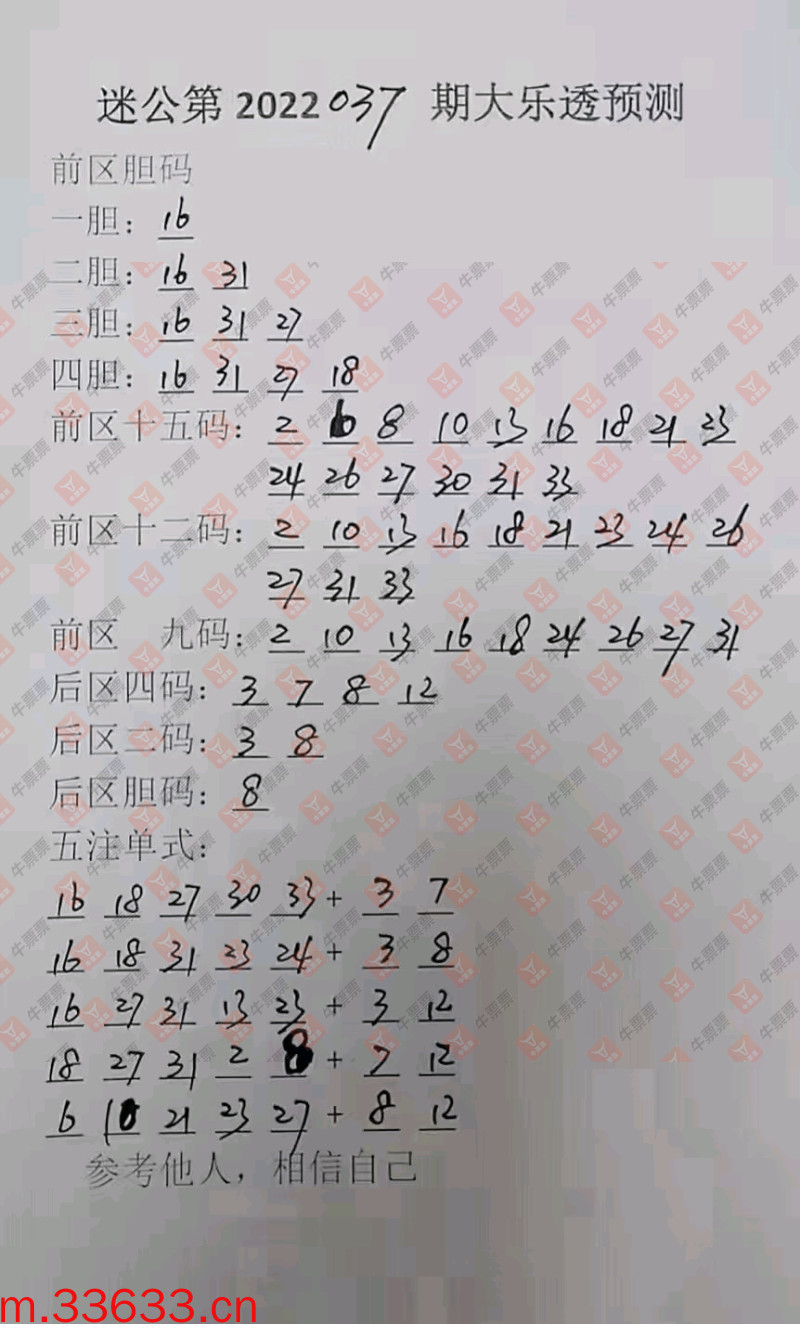 迷公第2022037期大乐透预测
前区胆码
一胆：16
二胆：16 31
三胆：16 31 27
四胆：16 31 27 18
前区十五码：2 6 8 10 13 16 18 21 23
24 26 27 30 31 33
前区十二码：2 10 13 16 18 21 23 24 26
27 31 33
前区 九码：2 10 13 16 18 24 26 27 31
后区四码：3 7 8 12
后区二码：3 8
后区胆码：8
五注单式：
16 18 27 30 33 + 3 7
16 18 31 23 24 + 3 8
16 27 31 13 23 + 3 12
18 27 31 2 8 + 7 12
6 10 21 23 27 + 8 12
参考他人，相信自己
牛票票
m.33633.cn